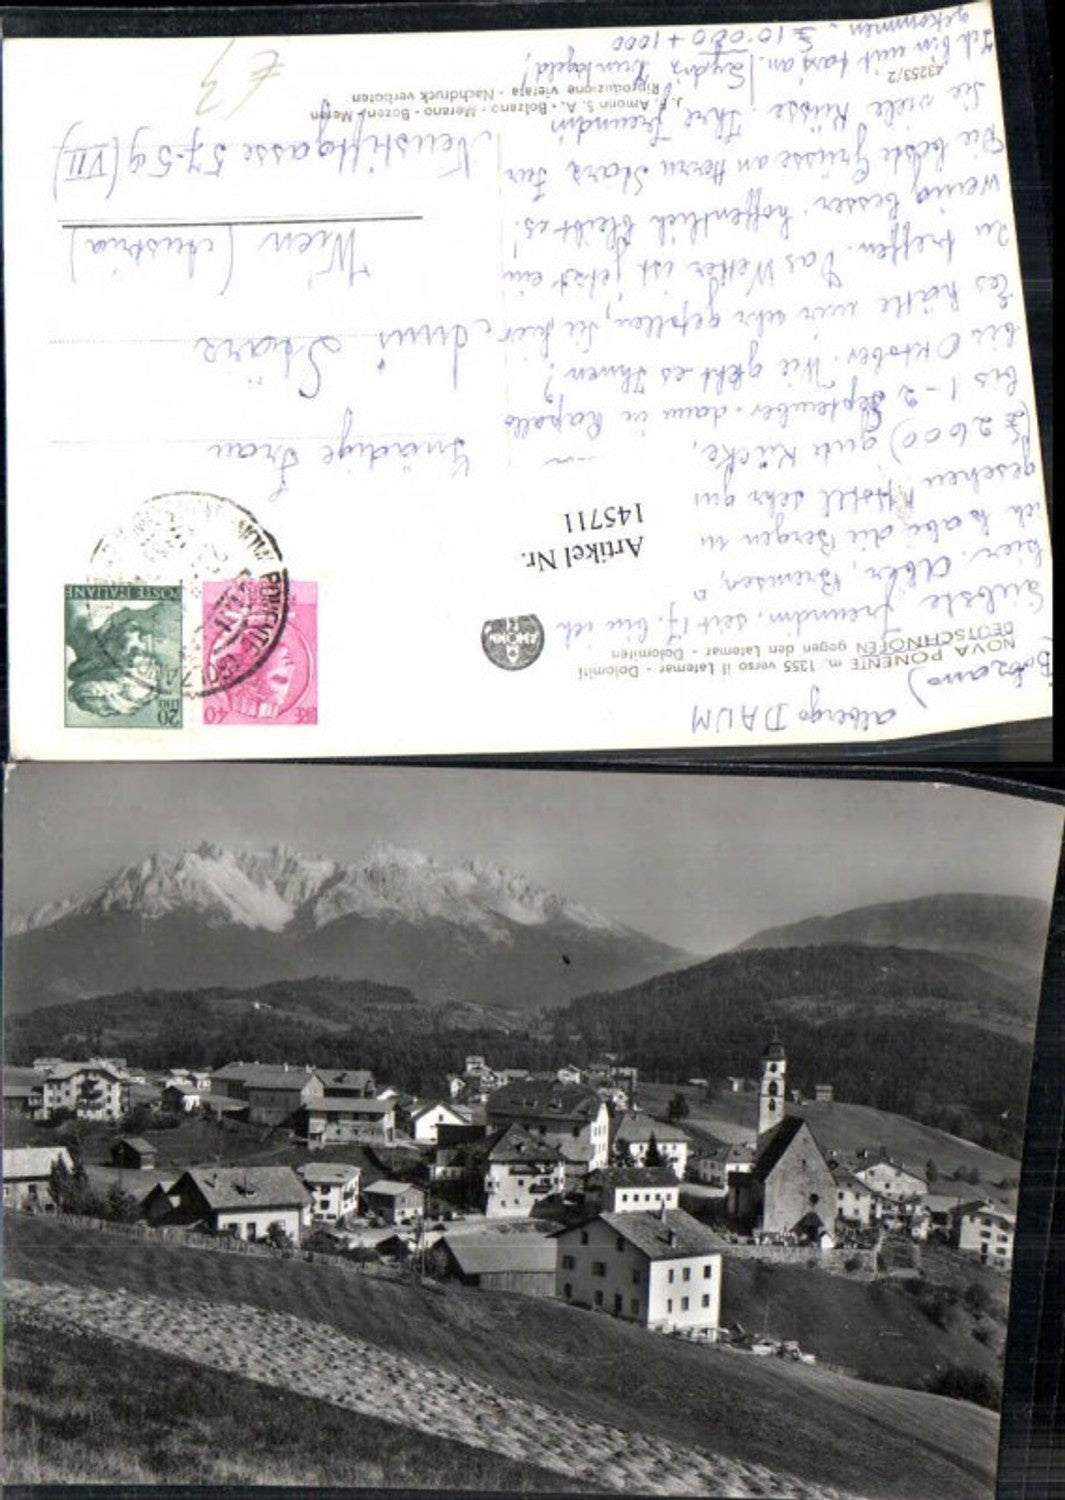 NOVA PONENTE m. 1355 verso il Latemar - Dolomiti
DEUTSCHNOFEN gegen den Latemar - Dolomiten
albergo DAUM
(Bolzano)
Liebste Freundin, seit 17. bin ich
hier. Aber, Bremsen,
ich habe die Bergen
gesehen Hotel sehr gut
(£ 2600) gute Küche,
bis 1-2 September. dann in Rapallo
bis Oktober. Wie geht es Ihnen?
Es hätte mir sehr gefallen, Sie hier
zu treffen. Das Wetter ist jetzt ein
wenig besser. hoffentlich bleibt es!
Die beste Grüsse an Herrn Stärz für
Sie viele Küsse. Ihre Freundin
Ich bin mit taxi an
gekommen. £ 10.000 + 1000
Trinkgeld!
Artikel Nr.
145711
AMONN
20
LIRE
POSTE ITALIANE
LIRE 40
NOVA PONENTE (BOLZANO)
Gnädige Frau
Stärz
Wien (Austria)
Neustiftgasse 57-59 (VII)
J. F. Amonn S. A. - Bolzano - Merano - Bozen - Meran
Riproduzione vietata - Nachdruck verboten
43253/2
€ 3